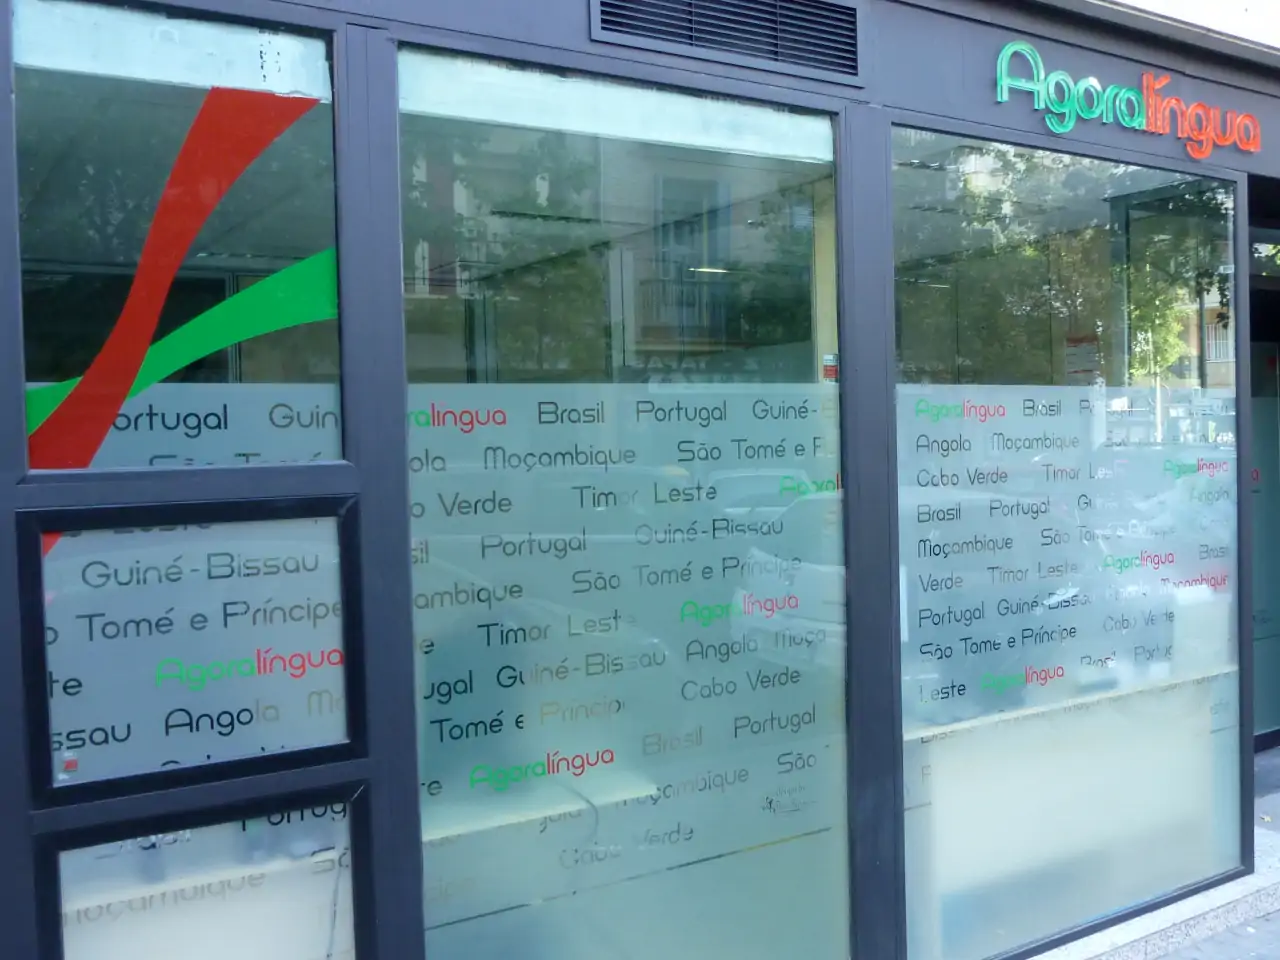 Agoralíngua
ortugal Guin
Guiné-Bissau
o Tomé e Príncipe
te Agoralíngua
ssau Angola Mo
Portug
moçambique Sã
ralíngua Brasil Portugal Guiné-B
ola Moçambique São Tomé e P
o Verde Timor Leste Agoral
sil Portugal Guiné-Bissau
ambique São Tomé e Príncipe
e Timor Leste Agoralíngua
ugal Guiné-Bissau Angola Moça
Tomé e Príncip Cabo Verde
te Agoralíngua Brasil Portugal
oçambique São
gola
Cabo Verde
Agoralíngua Brasil Po
Angola Moçambique
Cabo Verde Timor Leste Agoralíngua
Brasil Portugal Gui Angola
Moçambique São Tomé e Príncipe
Verde Timor Leste Agoralíngua Brasil
Portugal Guiné-Bissau Angola Moçambique
São Tomé e Príncipe Cabo Verde
Leste Agoralíngua Brasil Portug